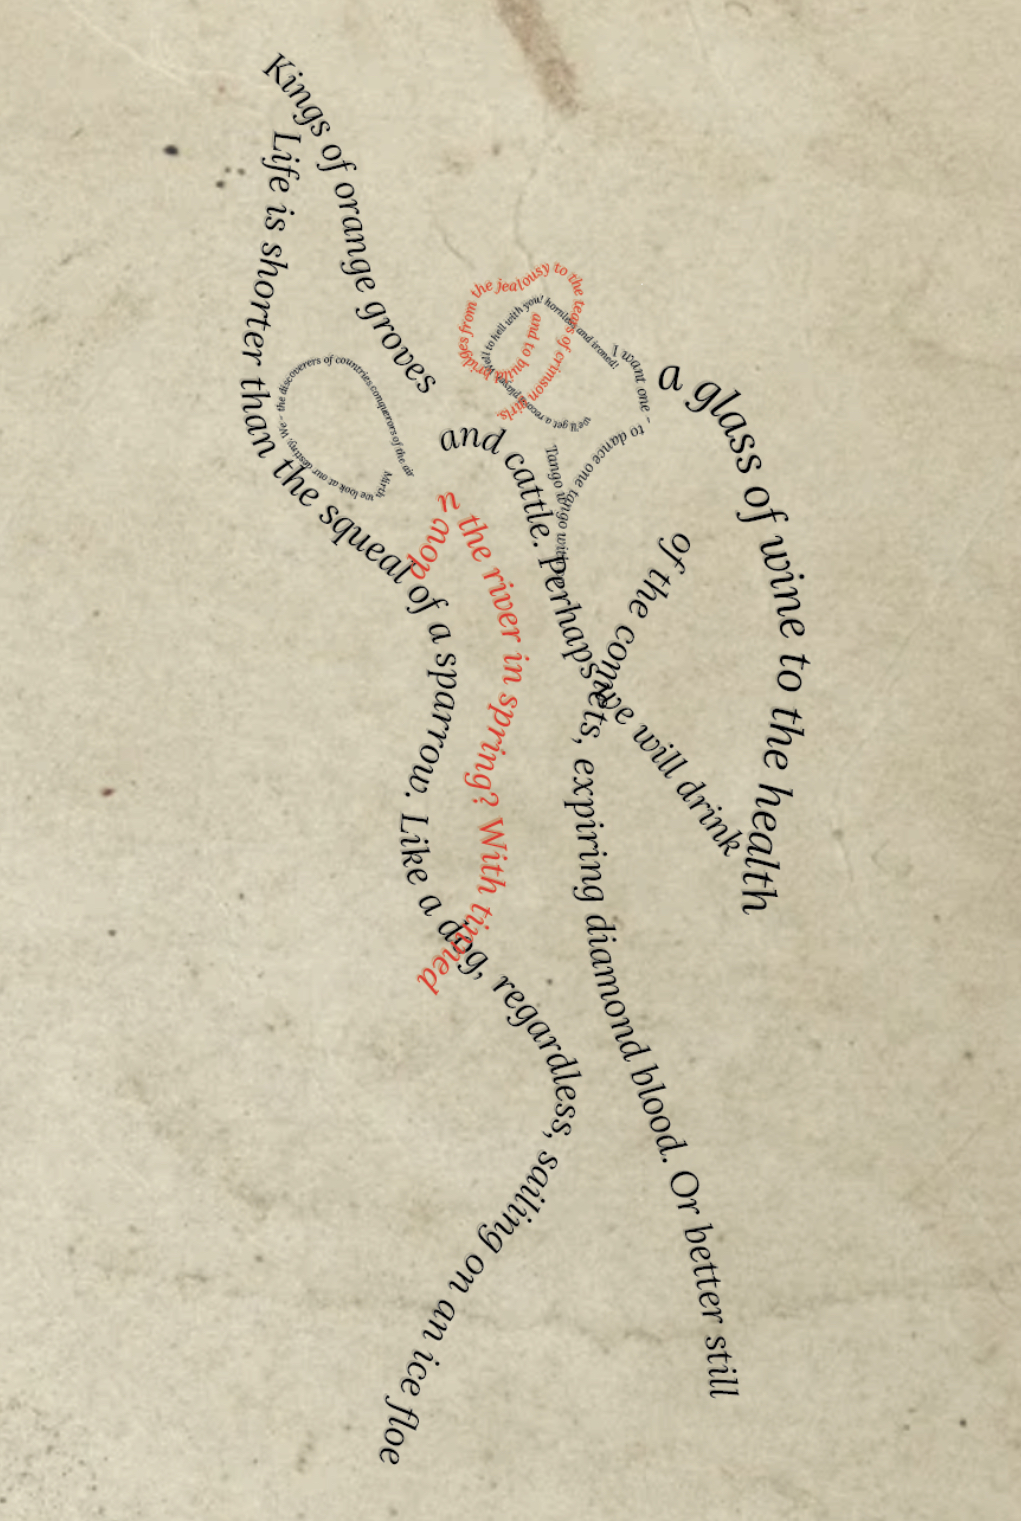 Kings of orange groves
and cattle. Perhaps
we will drink
a glass of wine to the health
of the comets, expiring diamond blood. Or better still
we'll get a record player. Well to hell with you! hornless and ironed!
I want one - to dance one tango
Tango tango with
Life is shorter than the squeal of a sparrow. Like a dog, regardless, sailing on an ice floe
down the river in spring? With tinned
Mirth we look at our destiny. We - the discoverers of countries conquerors of the air
and to build bridges from the jealousy to the tears of crimson girls.